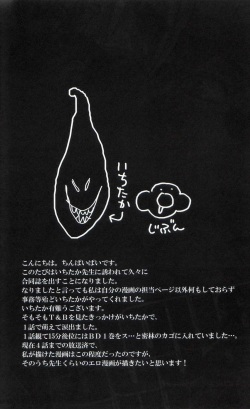 いちたか
じぶん
こんにちは。ちんぱいぱいです。
このたびはいちたか先生に誘われて久々に
合同誌を出すことになりました。
なりましたと言っても私は自分の漫画の担当ページ以外何もしておらず
事務等殆どいちたかがやってくれました。
いちたか有難うございます。
そもそもT&Bを見たきっかけがいちたかで、
1話で萌えて涙出ました。
1話観て15分後にはBD1巻をスッと密林のカゴに入れていました…。
現在4話まで放送済で、
私が描けた漫画はこの程度だったのですが、
そのうち先生くらいのエロ漫画が描きたいと思います!